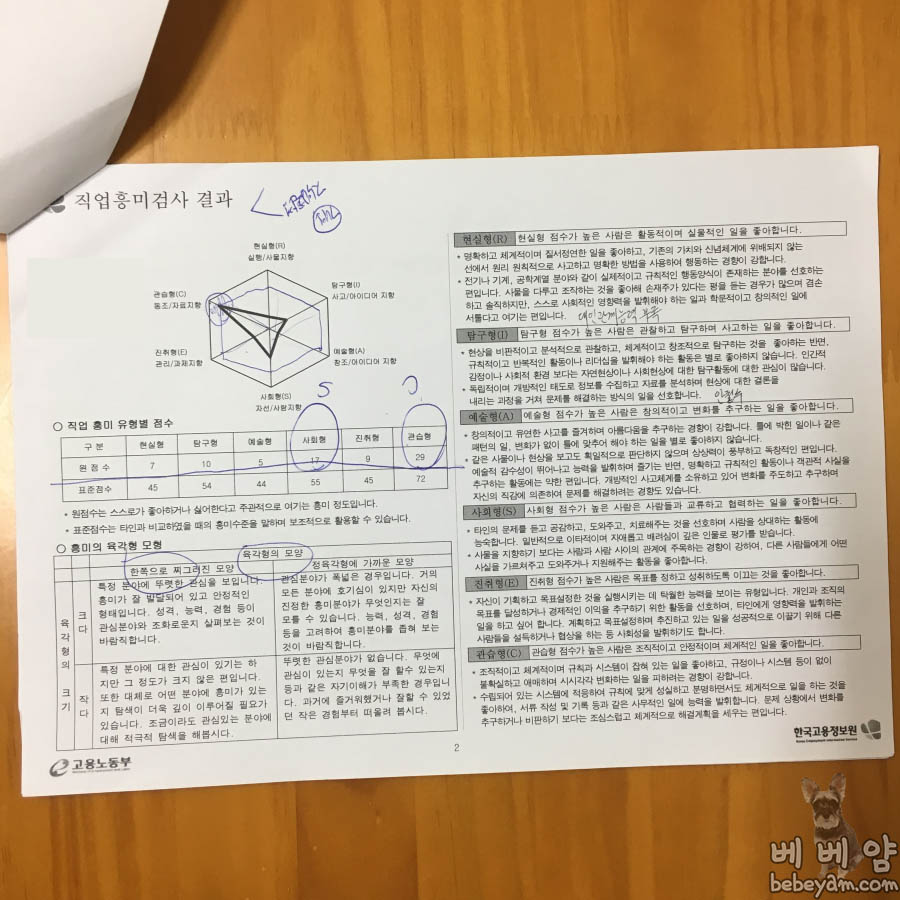 직업흥미검사 결과
현실형(R)
실행/사물지향
탐구형(I)
사고/아이디어 지향
예술형(A)
창조/아이디어 지향
사회형(S)
자선/사람지향
진취형(E)
관리/과제지향
관습형(C)
동조/자료지향
S
○ 직업 흥미 유형별 점수
구 분 현실형 탐구형 예술형 사회형 진취형 관습형
원 점 수 7 10 5 17 9 29
표준점수 45 54 44 55 45 72
* 원점수는 스스로가 좋아하거나 싫어한다고 주관적으로 여기는 흥미 정도입니다.
* 표준점수는 타인과 비교하였을 때의 흥미수준을 말하며 보조적으로 활용할 수 있습니다.
○ 흥미의 육각형 모형
육각형의 모양
한쪽으로 찌그러진 모양
정육각형에 가까운 모양
육각형의 크기
크다
특정 분야에 뚜렷한 관심을 보입니다.
흥미가 잘 발달되어 있고 안정적인
형태입니다. 성격, 능력, 경험 등이
관심분야와 조화로운지 살펴보는 것이
바람직합니다.
관심분야가 폭넓은 경우입니다. 거의
모든 분야에 호기심이 있지만 자신의
진정한 흥미분야가 무엇인지는 잘
모를 수 있습니다. 능력, 성격, 경험
등을 고려하여 흥미분야를 좁혀 보는
것이 바람직합니다.
작다
특정 분야에 대한 관심이 있기는 하
지만 그 정도가 크지 않은 편입니다.
또한 대체로 어떤 분야에 흥미가 있는
지 탐색이 더욱 깊이 이루어질 필요가
있습니다. 조금이라도 관심있는 분야에
대해 적극적 탐색을 해봅시다.
뚜렷한 관심분야가 없습니다. 무엇에
관심이 있는지 무엇을 잘 할수 있는지
등과 같은 자기이해가 부족한 경우입니
다. 과거에 즐거워했거나 잘할 수 있었
던 작은 경험부터 떠올려 봅시다.
고용노동부
2
현실형(R) 현실형 점수가 높은 사람은 활동적이며 실물적인 일을 좋아합니다.
* 명확하고 체계적이며 질서정연한 일을 좋아하고, 기존의 가치와 신념체계에 위배되지 않는
선에서 원리 원칙적으로 사고하고 명확한 방법을 사용하여 행동하는 경향이 강합니다.
* 전기나 기계, 공학계열 분야와 같이 실제적이고 규칙적인 행동양식이 존재하는 분야를 선호하는
편입니다. 사물을 다루고 조작하는 것을 좋아해 손재주가 있다는 평을 듣는 경우가 많으며 겸손
하고 솔직하지만, 스스로 사회적인 영향력을 발휘해야 하는 일과 학문적이고 창의적인 일에
서툴다고 여기는 편입니다.
탐구형(I) 탐구형 점수가 높은 사람은 관찰하고 탐구하며 사고하는 일을 좋아합니다.
* 현상을 비판적이고 분석적으로 관찰하고, 체계적이고 창조적으로 탐구하는 것을 좋아하는 반면,
규칙적이고 반복적인 활동이나 리더십을 발휘해야 하는 활동은 별로 좋아하지 않습니다. 인간적
감정이나 사회적 환경 보다는 자연현상이나 사회현상에 대한 탐구활동에 대한 관심이 많습니다.
* 독립적이며 개방적인 태도로 정보를 수집하고 자료를 분석하며 현상에 대한 결론을
내리는 과정을 거쳐 문제를 해결하는 방식의 일을 선호합니다.
예술형(A) 예술형 점수가 높은 사람은 창의적이고 변화를 추구하는 일을 좋아합니다.
* 창의적이고 유연한 사고를 즐겨하며 아름다움을 추구하는 경향이 강합니다. 틀에 박힌 일이나 같은
패턴의 일, 변화가 없이 틀에 맞추어 해야 하는 일을 별로 좋아하지 않습니다.
* 같은 사물이나 현상을 보고도 획일적으로 판단하지 않으며 상상력이 풍부하고 독창적인 편입니다.
예술적 감수성이 뛰어나고 능력을 발휘하며 즐기는 반면, 명확하고 규칙적인 활동이나 객관적 사실을
추구하는 활동에는 약한 편입니다. 개방적인 사고체계를 소유하고 있어 변화를 주도하고 추구하며
자신의 직감에 의존하여 문제를 해결하려는 경향도 있습니다.
사회형(S) 사회형 점수가 높은 사람은 사람들과 교류하고 협력하는 일을 좋아합니다.
* 타인의 문제를 듣고 공감하고, 도와주고, 치료해주는 것을 선호하며 사람을 상대하는 활동에
능숙합니다. 일반적으로 이타적이며 자애롭고 배려심이 깊은 인물로 평가를 받습니다.
* 사물을 지향하기 보다는 사람과 사람 사이의 관계에 주목하는 경향이 강하여, 다른 사람들에게 어떤
사실을 가르쳐주고 도와주거나 지원해주는 활동을 좋아합니다.
진취형(E) 진취형 점수가 높은 사람은 목표를 정하고 성취하도록 이끄는 것을 좋아합니다.
* 자신이 기획하고 목표설정한 것을 실행시키는 데 탁월한 능력을 보이는 유형입니다. 개인과 조직의
목표를 달성하거나 경제적인 이익을 추구하기 위한 활동을 선호하며, 타인에게 영향력을 발휘하는
일을 하고 싶어 합니다. 계획하고 목표설정하며 추진하고 있는 일을 성공적으로 이끌기 위해 다른
사람들을 설득하거나 협상을 하는 등 사회성을 발휘하기도 합니다.
관습형(C) 관습형 점수가 높은 사람은 조직적이고 안정적이며 체계적인 일을 좋아합니다.
* 조직적이고 체계적이며 규칙과 시스템이 잡혀 있는 일을 좋아하고, 규정이나 시스템 등이 없이
불확실하고 애매하며 시시각각 변화하는 일을 피하려는 경향이 강합니다.
* 수립되어 있는 시스템에 적응하여 규칙에 맞게 성실하고 분명하면서도 체계적으로 일을 하는 것을
좋아하여, 서류 작성 및 기록 등과 같은 사무적인 일에 능력을 발휘합니다. 문제 상황에서 변화를
추구하거나 비판하기 보다는 조심스럽고 체계적으로 해결계획을 세우는 편입니다.
한국고용정보원
베베얌
bebeyam.com